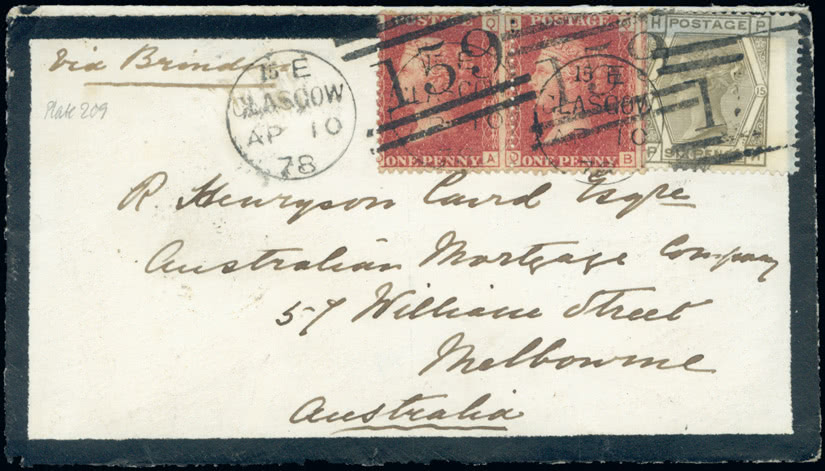 Via Brindisi
Plate 209
15 E
GLASGOW
AP 10
78
159
POSTAGE Q
ONE PENNY A
POSTAGE
Q ONE PENNY B
15 E
GLASGOW
10
H POSTAGE P
15
P SIX PENCE H
R. Henryson Caird Esqre
Australian Mortgage Company
57 William Street
Melbourne
Australia